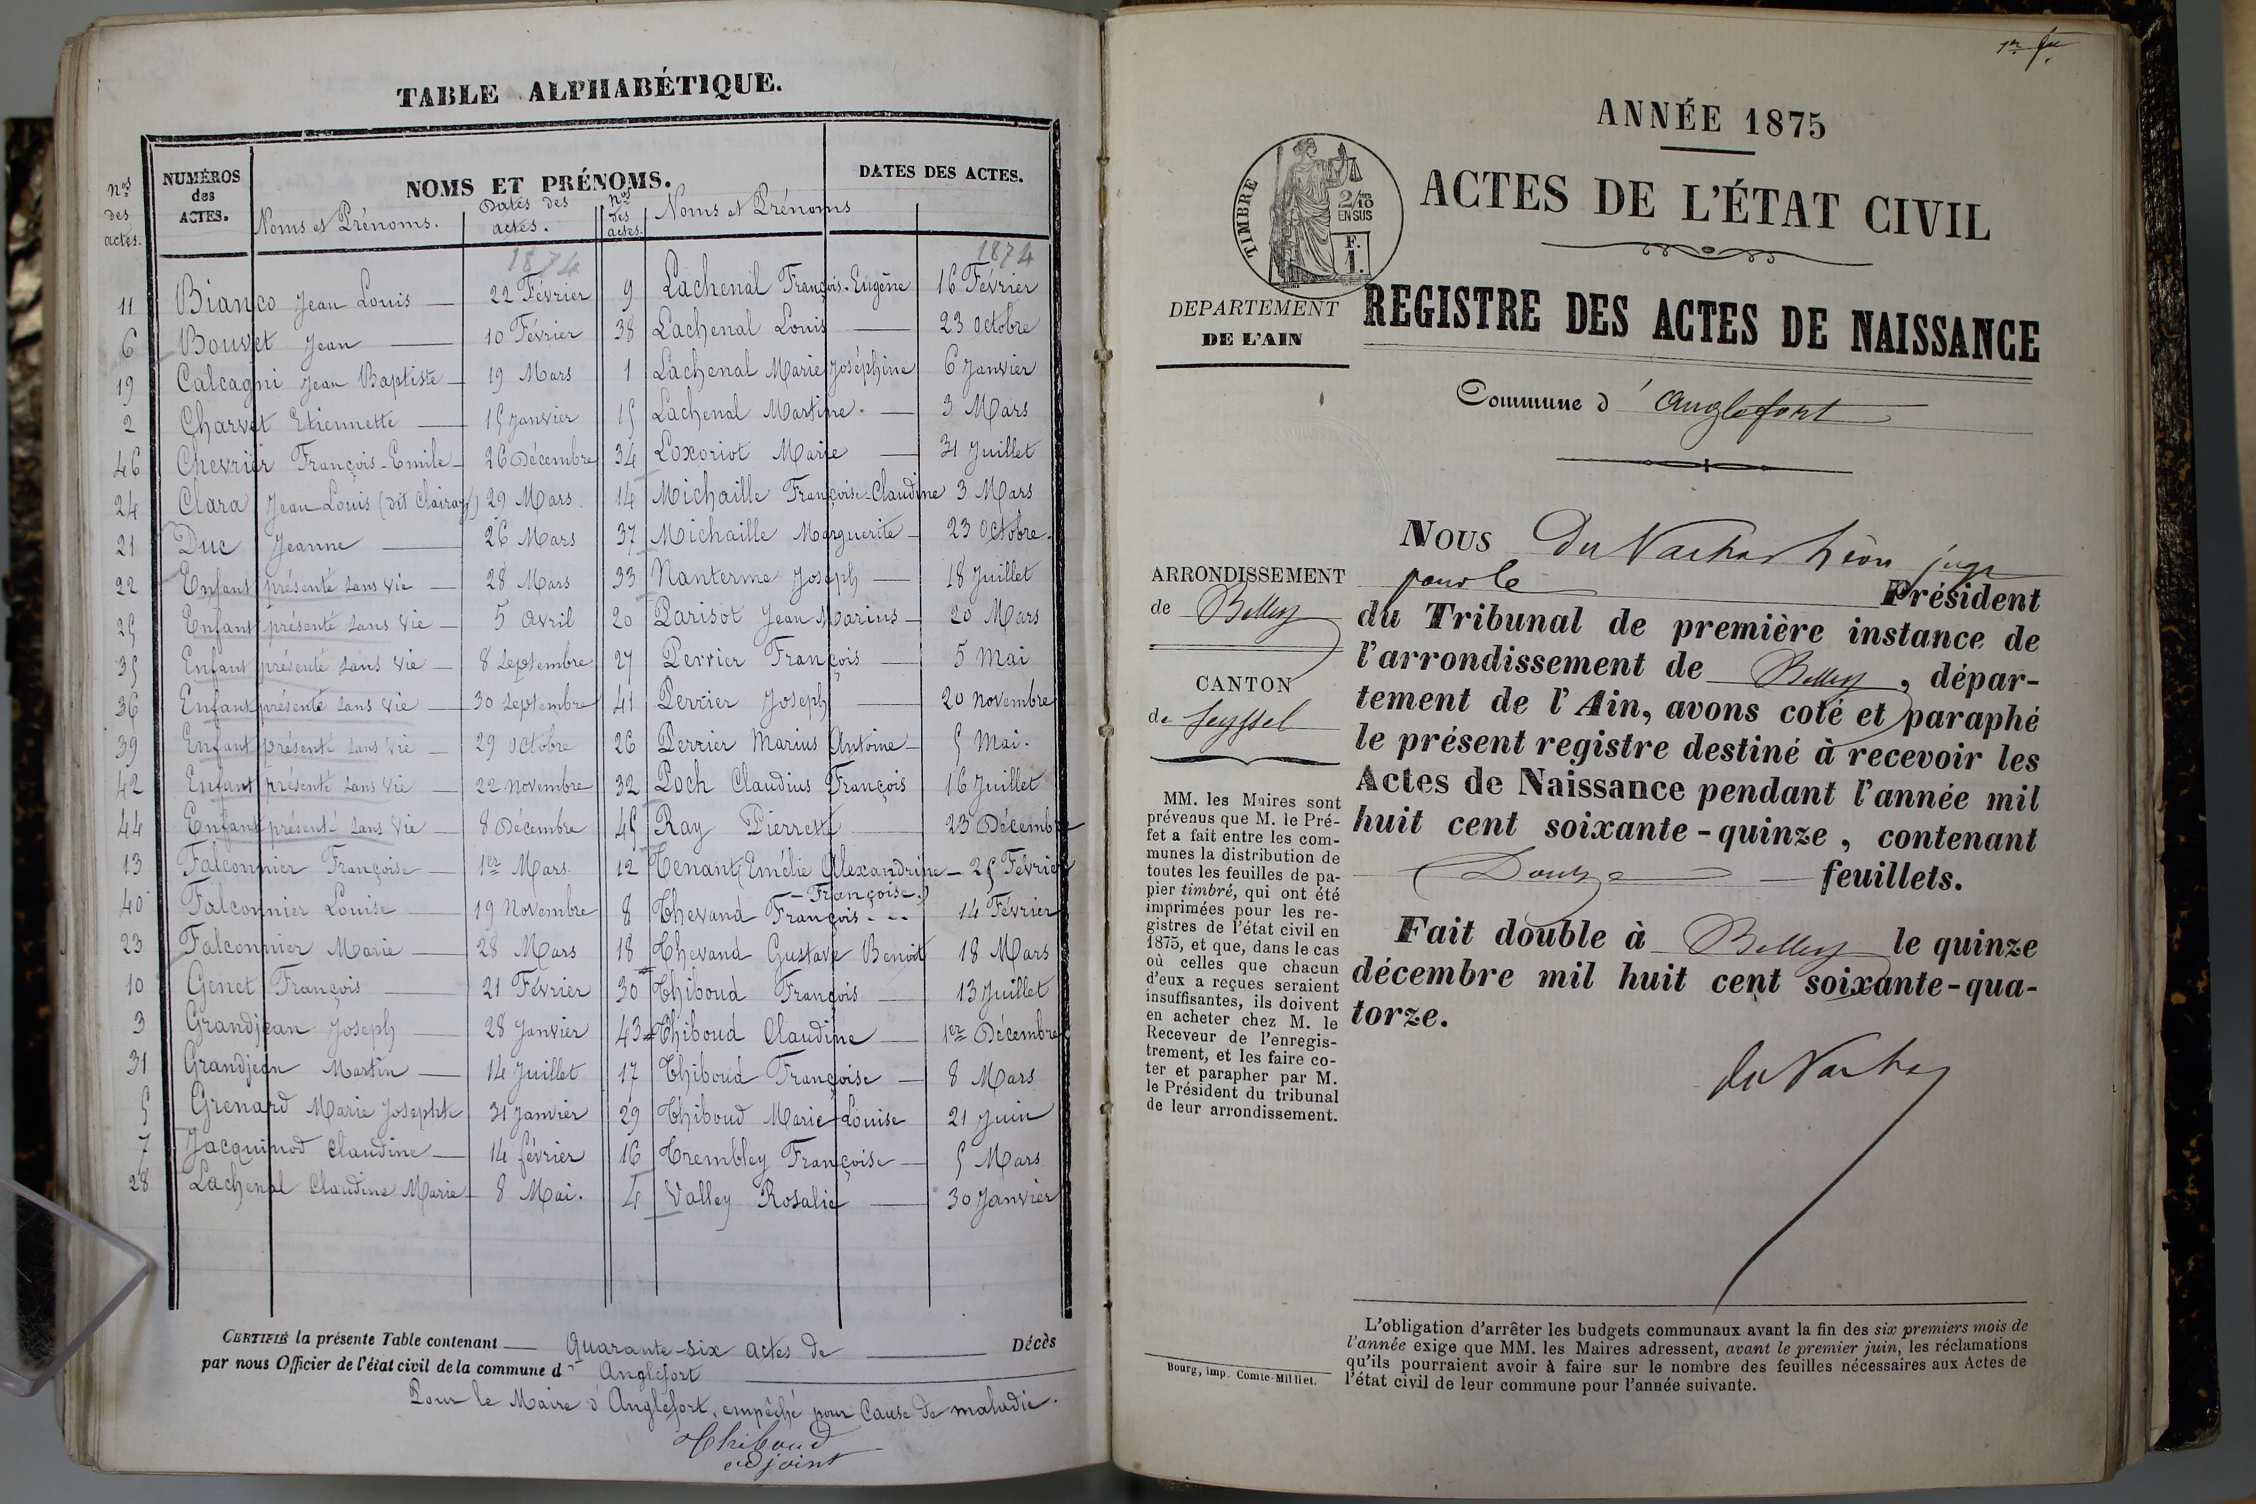 TABLE ALPHABÉTIQUE.
nos des actes.
NUMÉROS des ACTES.
NOMS ET PRÉNOMS.
DATES DES ACTES.
Noms et Prénoms.
Dates des actes.
nos des actes.
Noms et Prénoms
1874
1874
11 Bianco Jean Louis — 22 Février
6 Bouvet Jean — 10 Février
19 Calcagni Jean Baptiste — 19 Mars
2 Charvet Etiennette — 15 Janvier
46 Chevrier François-Emile — 26 Décembre
24 Clara Jean Louis (dit Clairay) 29 Mars.
21 Duc Jeanne — 26 Mars
22 Enfant présenté sans vie — 28 Mars
25 Enfant présenté sans vie — 5 avril
35 Enfant présenté sans vie — 8 Septembre
36 Enfant présenté sans vie — 30 Septembre
39 Enfant présenté sans vie — 29 Octobre
42 Enfant présenté sans vie — 22 novembre
44 Enfant présenté sans vie — 8 Décembre
13 Falconnier Françoise — 1er Mars
40 Falconnier Louise — 19 Novembre
23 Falconnier Marie — 28 Mars
10 Genet François — 21 Février
3 Grandjean Joseph — 28 Janvier
31 Grandjean Martin — 14 Juillet
5 Grenard Marie Josephte 31 Janvier
7 Jacquinod Claudine — 14 février
28 Lachenal Claudine Marie 8 Mai.
9 Lachenal François-Eugène 16 Février
38 Lachenal Louis — 23 Octobre
1 Lachenal Marie Joséphine 6 Janvier
15 Lachenal Martine. — 3 Mars
34 Loxoriot Marie — 31 Juillet
14 Michaille Françoise-Claudine 3 Mars
37 Michaille Marguerite — 23 Octobre.
33 Nanterme Joseph — 18 Juillet
20 Parisot Jean Marius — 20 Mars
27 Perrier François — 5 Mai
41 Perrier Joseph — 20 novembre
26 Perrier Marius Antoine — 5 Mai.
32 Poch Claudius François 16 Juillet
45 Ray Pierrette — 23 Décembre
12 Tenant (Emélie Alexandrine — 25 Février
— Françoise.)
8 Thevand François - -- 14 Février
18 Thevand Gustave Benoit 18 Mars
30 Thiboud François — 13 Juillet
43 Thiboud Claudine — 1er Décembre
17 Thiboud Françoise — 8 Mars
29 Thiboud Marie-Louise 21 Juin
16 Trembley Françoise — 5 Mars
4 Valley Rosalie — 30 Janvier
CERTIFIÉ la présente Table contenant Quarante-six actes de Décès
par nous Officier de l'état civil de la commune d' Anglefort
Pour le Maire d'Anglefort, empêché pour cause de maladie.
Thiboud
adjoint
1er fet
ANNÉE 1875
ACTES DE L'ÉTAT CIVIL
TIMBRE
2/10
EN SUS
F.
1.
DEPARTEMENT
DE L'AIN
REGISTRE DES ACTES DE NAISSANCE
Commune d'Anglefort
ARRONDISSEMENT
de Belley
CANTON
de Seyssel
MM. les Maires sont
prévenus que M. le Pré-
fet a fait entre les com-
munes la distribution de
toutes les feuilles de pa-
pier timbré, qui ont été
imprimées pour les re-
gistres de l'état civil en
1875, et que, dans le cas
où celles que chacun
d'eux a reçues seraient
insuffisantes, ils doivent
en acheter chez M. le
Receveur de l'enregis-
trement, et les faire co-
ter et parapher par M.
le Président du tribunal
de leur arrondissement.
Bourg, imp. Comte-Milliet.
NOUS Du Vachat Léon juge
pour le Président
du Tribunal de première instance de
l'arrondissement de Belley, dépar-
tement de l'Ain, avons coté et paraphé
le présent registre destiné à recevoir les
Actes de Naissance pendant l'année mil
huit cent soixante-quinze, contenant
Douze feuillets.
Fait double à Belley le quinze
décembre mil huit cent soixante-qua-
torze.
du Vachat
L'obligation d'arrêter les budgets communaux avant la fin des six premiers mois de
l'année exige que MM. les Maires adressent, avant le premier juin, les réclamations
qu'ils pourraient avoir à faire sur le nombre des feuilles nécessaires aux Actes de
l'état civil de leur commune pour l'année suivante.